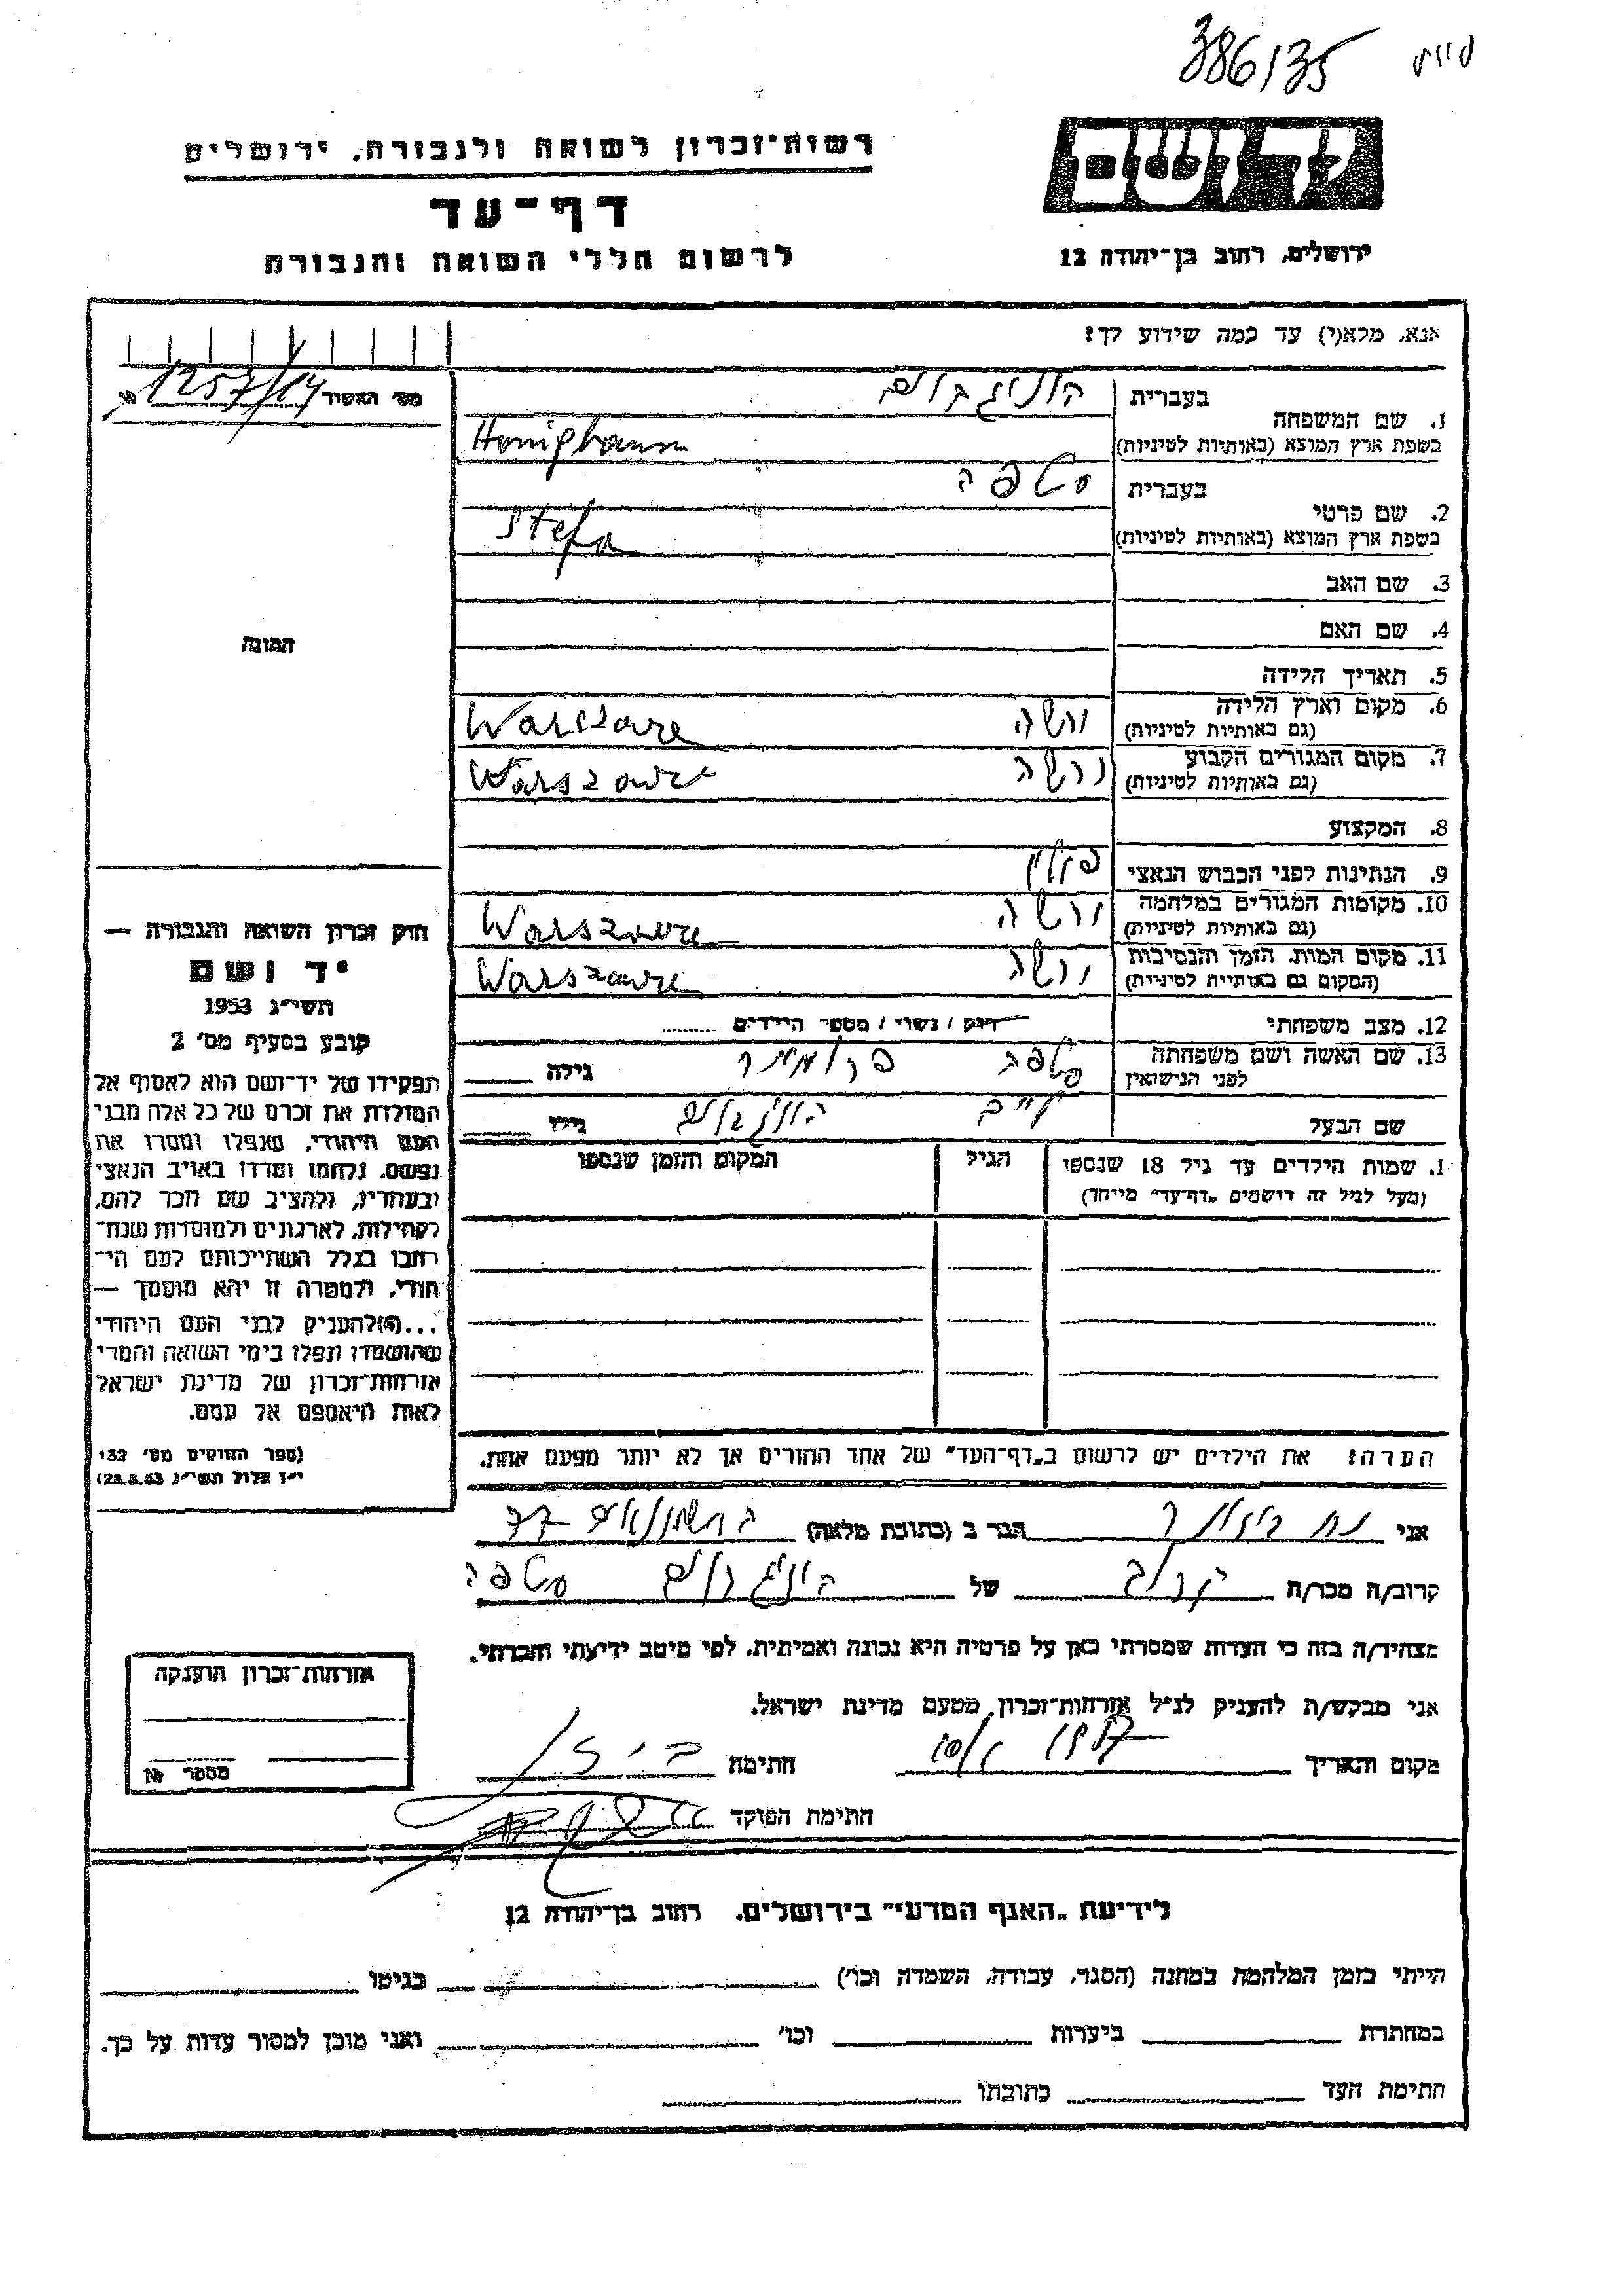 386135
רשות־זכרון לשואה ולגבורה, ירושלים
יד ושם
דף־עד
לרשום חללי השואה והגבורה
ירושלים, רחוב בן־יהודה 12
אנא, מלא(י) עד כמה שידוע לך:
מס׳ האשיר № 1257/14
בעברית הוניגבוים
1. שם המשפחה
בשפת ארץ המוצא (באותיות לטיניות) Honigbaum
בעברית סטפה
2. שם פרטי
בשפת ארץ המוצא (באותיות לטיניות) Stefa
3. שם האב
4. שם האם
תמונה
5. תאריך הלידה
6. מקום וארץ הלידה ורשה
(גם באותיות לטיניות) Warszawa
7. מקום המגורים הקבוע ורשה
(גם באותיות לטיניות) Warszawa
8. המקצוע
9. הנתינות לפני הכבוש הנאצי פולין
10. מקומות המגורים במלחמה ורשה
(גם באותיות לטיניות) Warszawa
11. מקום המות, הזמן והנסיבות ורשה
(המקום גם באותיות לטיניות) Warszawa
12. מצב משפחתי רוק / נשוי / מספר הילדים
13. שם האשה ושם משפחתה סטפה
לפני הנישואין גילה
שם הבעל גילו
חוק זכרון השואה והגבורה —
יד ושם
תשי״ג 1953
קובע בסעיף מס׳ 2
תפקידו של יד־ושם הוא לאסוף אל
המולדת את זכרם של כל אלה מבני
העם היהודי, שנפלו ומסרו את
נפשם, נלחמו ומרדו באויב הנאצי
ובעוזריו, ולהציב שם וזכר להם,
לקהילות, לארגונים ולמוסדות שנח־
רבו בגלל השתייכותם לעם הי־
הודי, ולמטרה זו יהא מוסמך —
...(4) להעניק לבני העם היהודי
שהושמדו ונפלו בימי השואה והמרי
אזרחות־זכרון של מדינת ישראל
לאות היאספם אל עמם.
(ספר החוקים מס׳ 132,
י״ז אלול תשי״ג 28.8.53)
1. שמות הילדים עד גיל 18 שנספו הגיל המקום והזמן שנספו
(מעל לגיל זה רושמים „דף־עד״ מייחד)
הערה: את הילדים יש לרשום ב„דף־העד״ של אחד ההורים אך לא יותר מפעם אחת.
אני הגר ב (כתובת מלאה)
קרוב/ה מכר/ה קרוב של הוניגבוים סטפה
מצהיר/ה בזה כי העדות שמסרתי כאן על פרטיה היא נכונה ואמיתית, לפי מיטב ידיעתי והכרתי.
אני מבקש/ת להעניק לנ״ל אזרחות־זכרון מטעם מדינת ישראל.
מקום ותאריך 1957 חתימה
חתימת הפוקד
אזרחות־זכרון הוענקה
מספר №
לידיעת „האגף המדעי״ בירושלים, רחוב בן־יהודה 12
הייתי בזמן המלחמה במחנה (הסגר, עבודה, השמדה וכו׳) בגיטו
במחתרת ביערות וכו׳ ואני מוכן למסור עדות על כך.
חתימת העד כתובתו